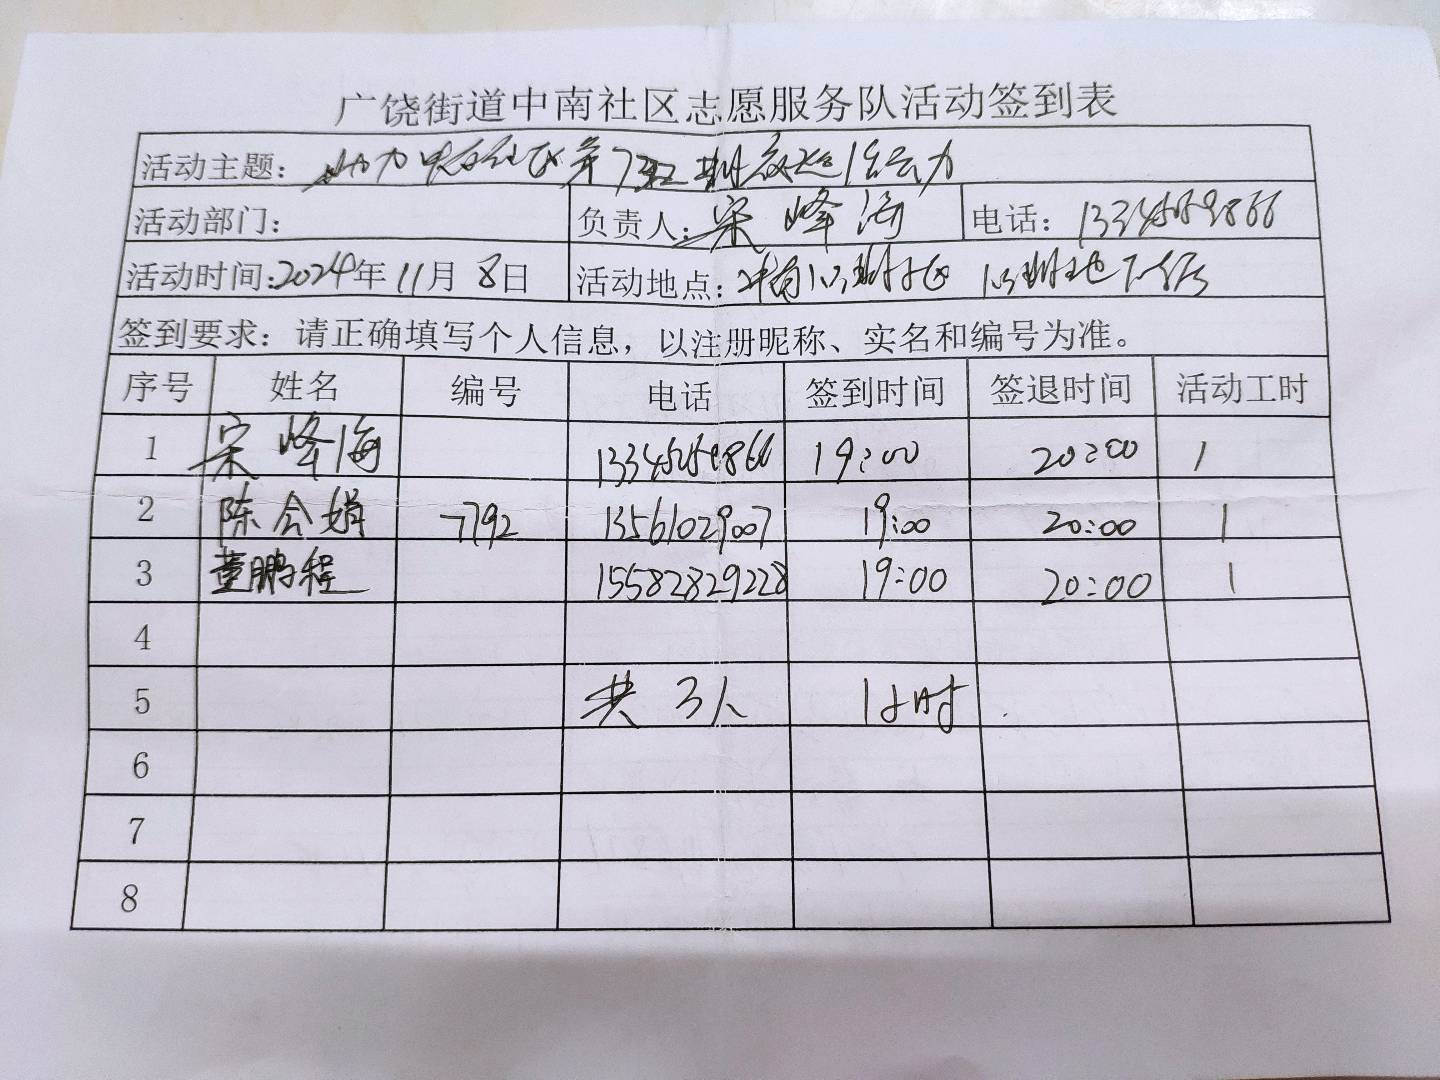 广饶街道中南社区志愿服务队活动签到表
活动主题：助力 第732期
活动部门： 负责人：宋峰海 电话：13345059866
活动时间：2024年11月8日 活动地点：
签到要求：请正确填写个人信息，以注册昵称、实名和编号为准。
序号 姓名 编号 电话 签到时间 签退时间 活动工时
1 宋峰海 13345059866 19:00 20:00 1
2 陈会娟 7792 13561029007 19:00 20:00 1
3 董鹏程 15582829228 19:00 20:00 1
4
5 共3人 1小时
6
7
8